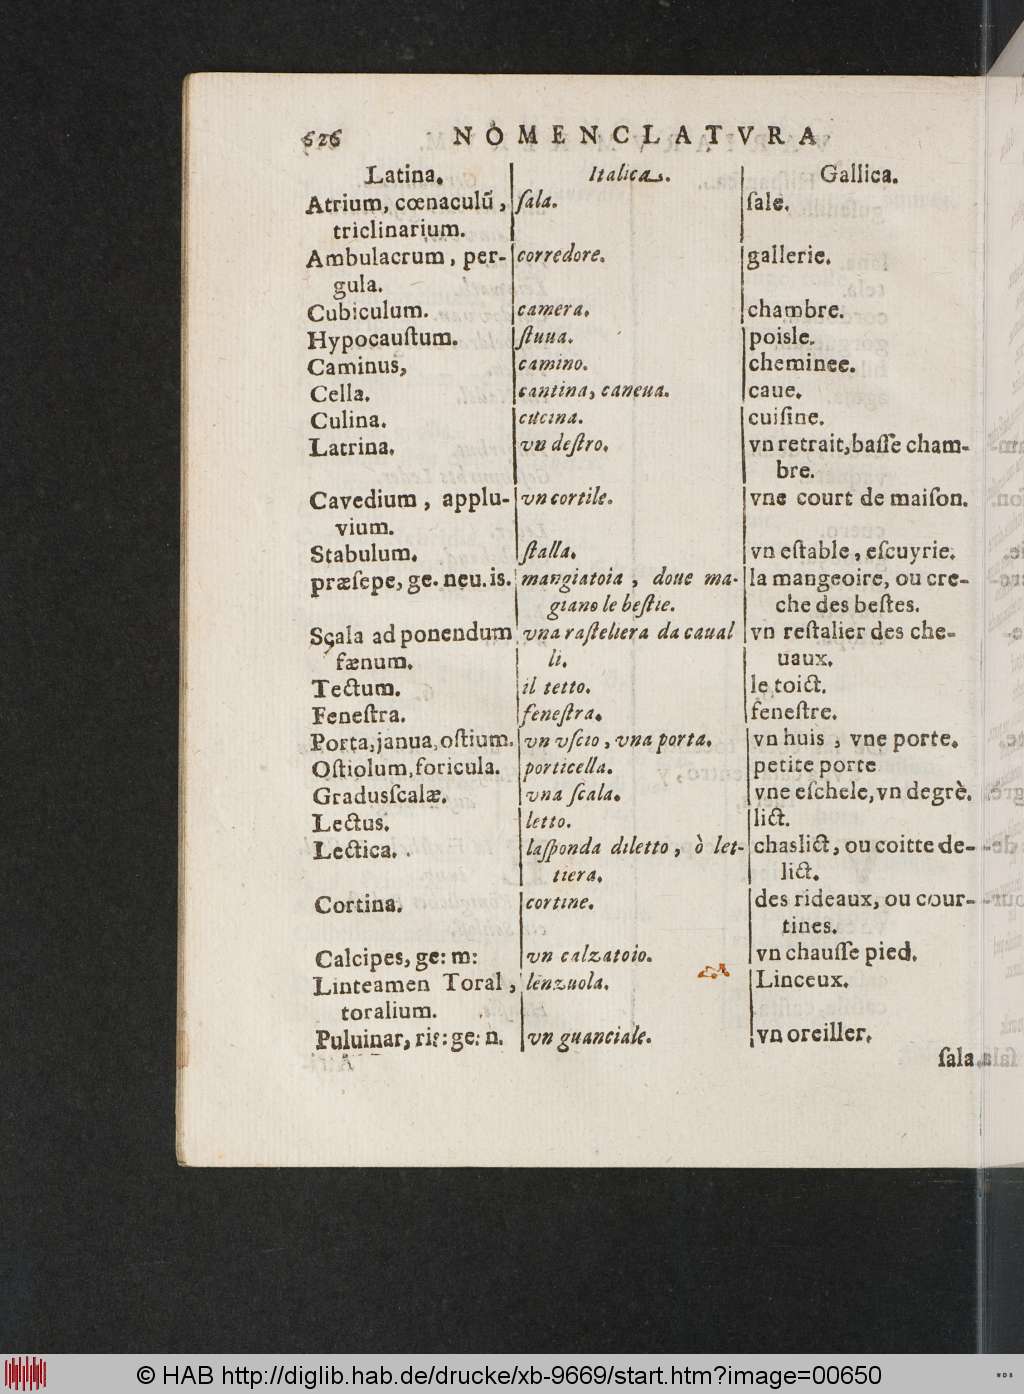 626 NOMENCLATVRA
Latina. Italica. Gallica.
Atrium, cœnaculũ, ſala. ſale.
triclinarium.
Ambulacrum, per- corredore. gallerie.
gula.
Cubiculum. camera. chambre.
Hypocauſtum. ſtuua. poisle.
Caminus, camino. cheminee.
Cella. cantina, caneua. caue.
Culina. cucina. cuiſine.
Latrina. vn deſtro. vn retrait, baſſe cham-
bre.
Cavedium, applu- vn cortile. vne court de maiſon.
vium.
Stabulum. ſtalla. vn eſtable, eſcuyrie.
præſepe, ge. neu. is. mangiatoia, doue ma- la mangeoire, ou cre-
giano le beſtie. che des beſtes.
Scala ad ponendum vna raſteliera da caual vn reſtalier des che-
fænum. li. uaux.
Tectum. il tetto. le toict.
Feneſtra. feneſtra. feneſtre.
Porta, janua, oſtium. vn vſcio, vna porta. vn huis, vne porte.
Oſtiolum, foricula. porticella. petite porte
Gradusſcalæ. vna ſcala. vne eſchele, vn degrè.
Lectus. letto. lict.
Lectica. laſponda diletto, ò let- chaslict, ou coitte de-
tiera. lict.
Cortina. cortine. des rideaux, ou cour-
tines.
Calcipes, ge: m: vn calzatoio. vn chauſſe pied.
Linteamen Toral, lenzuola. Linceux.
toralium.
Puluinar, ris: ge: n. vn guanciale. vn oreiller.
ſala
© HAB http://diglib.hab.de/drucke/xb-9669/start.htm?image=00650